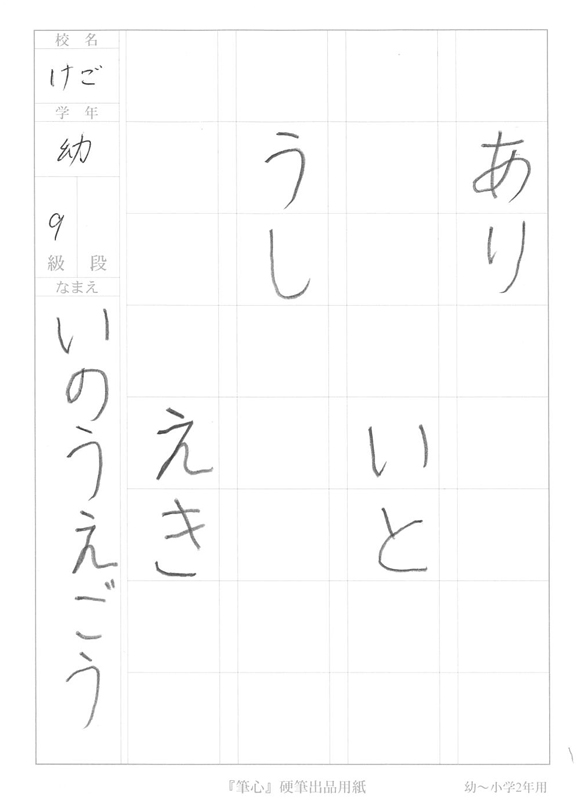 あり
いと
うし
えき
校名
けご
学年
幼
9
級 段
なまえ
いのうえごう
『筆心』硬筆出品用紙
幼〜小学2年用